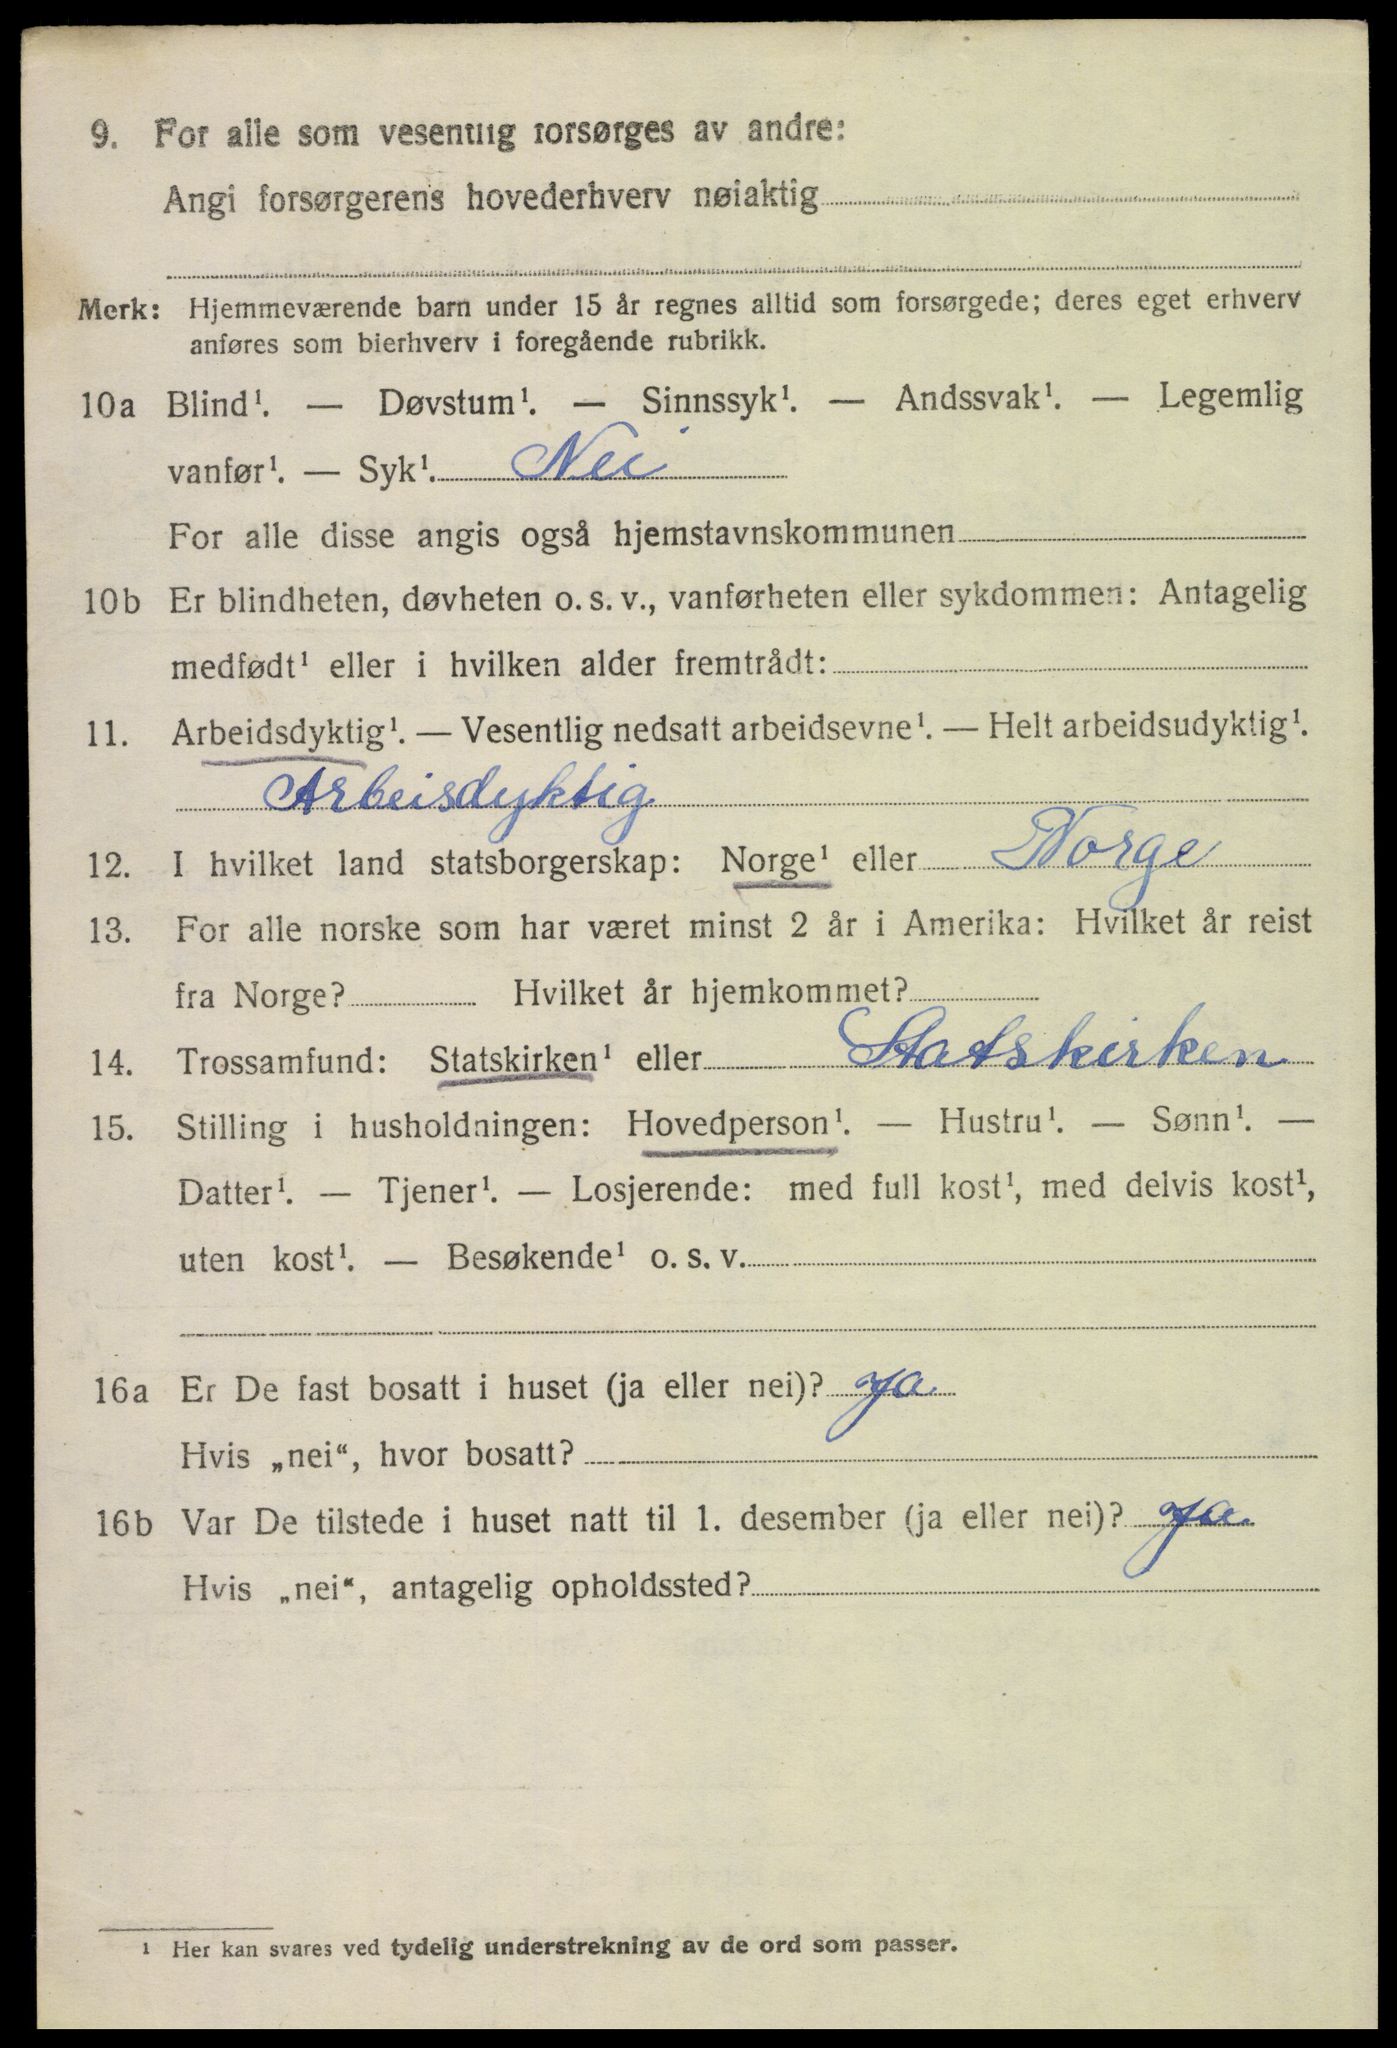 9. For alle som vesentlig forsørges av andre:
Angi forsørgerens hovederhverv nøiaktig
Merk: Hjemmeværende barn under 15 år regnes alltid som forsørgede; deres eget erhverv
anføres som bierhverv i foregående rubrikk.
10a Blind¹. — Døvstum¹. — Sinnssyk¹. — Andssvak¹. — Legemlig
vanfør¹. — Syk¹. Nei
For alle disse angis også hjemstavnskommunen
10b Er blindheten, døvheten o. s. v., vanførheten eller sykdommen: Antagelig
medfødt¹ eller i hvilken alder fremtrådt:
11. Arbeidsdyktig¹. — Vesentlig nedsatt arbeidsevne¹. — Helt arbeidsudyktig¹.
Arbeisdyktig
12. I hvilket land statsborgerskap: Norge¹ eller Norge
13. For alle norske som har været minst 2 år i Amerika: Hvilket år reist
fra Norge? Hvilket år hjemkommet?
14. Trossamfund: Statskirken¹ eller Statskirken
15. Stilling i husholdningen: Hovedperson¹. — Hustru¹. — Sønn¹. —
Datter¹. — Tjener¹. — Losjerende: med full kost¹, med delvis kost¹,
uten kost¹. — Besøkende¹ o. s. v.
16a Er De fast bosatt i huset (ja eller nei)? ja
Hvis „nei“, hvor bosatt?
16b Var De tilstede i huset natt til 1. desember (ja eller nei)? ja
Hvis „nei“, antagelig opholdssted?
¹ Her kan svares ved tydelig understrekning av de ord som passer.